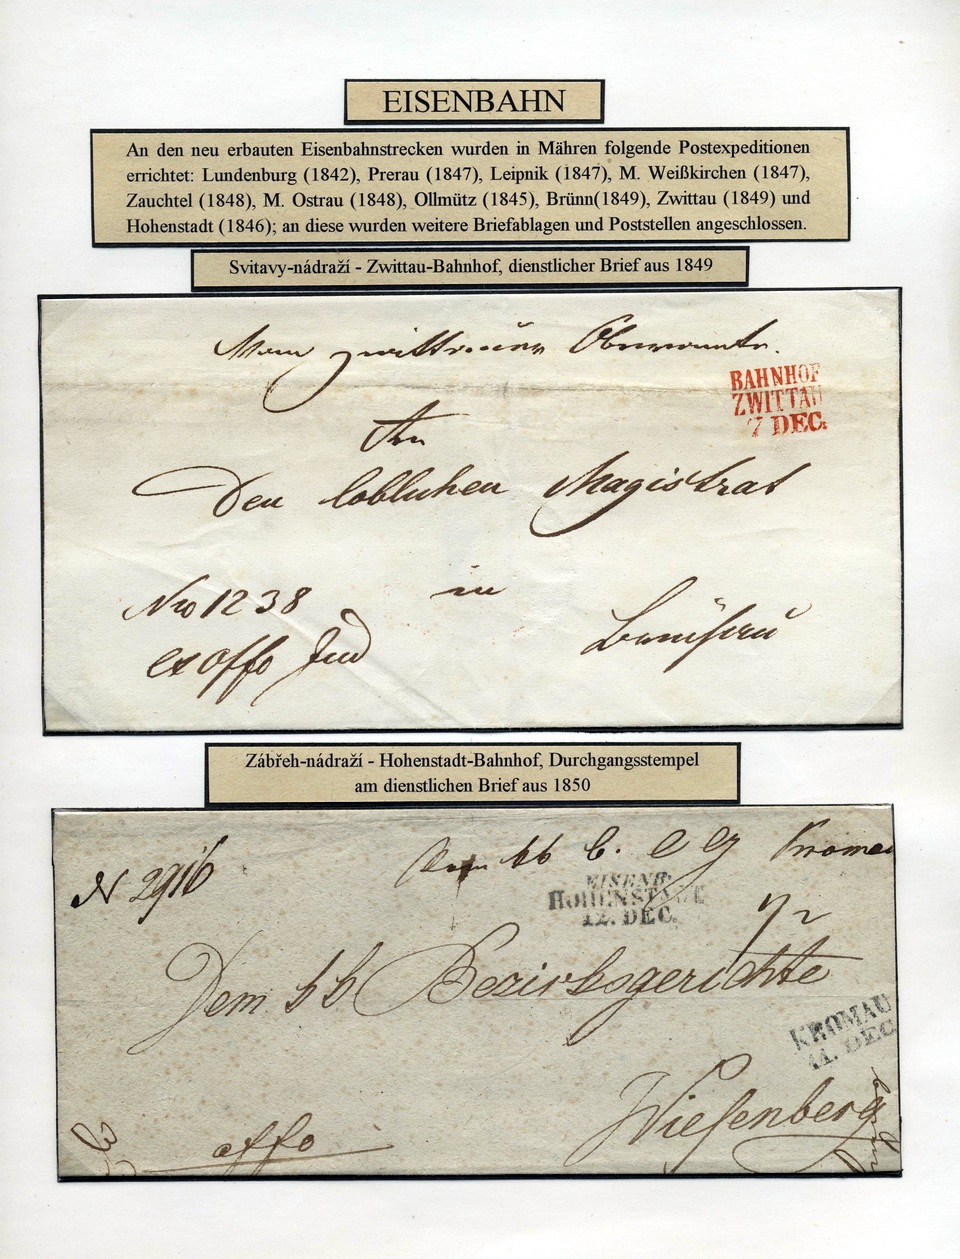 EISENBAHN
An den neu erbauten Eisenbahnstrecken wurden in Mähren folgende Postexpeditionen
errichtet: Lundenburg (1842), Prerau (1847), Leipnik (1847), M. Weißkirchen (1847),
Zauchtel (1848), M. Ostrau (1848), Ollmütz (1845), Brünn(1849), Zwittau (1849) und
Hohenstadt (1846); an diese wurden weitere Briefablagen und Poststellen angeschlossen.
Svitavy-nádraží - Zwittau-Bahnhof, dienstlicher Brief aus 1849
BAHNHOF
ZWITTAU
7 DEC.
An
Den löblichen Magistrat
Nro 1238
in
ex offo
Zábřeh-nádraží - Hohenstadt-Bahnhof, Durchgangsstempel
am dienstlichen Brief aus 1850
N 2916
Kromau
EISENB:
HOHENSTADT
12. DEC.
Dem kk Bezirksgerichte
KROMAU
11. DEC
Wiesenberg
offo